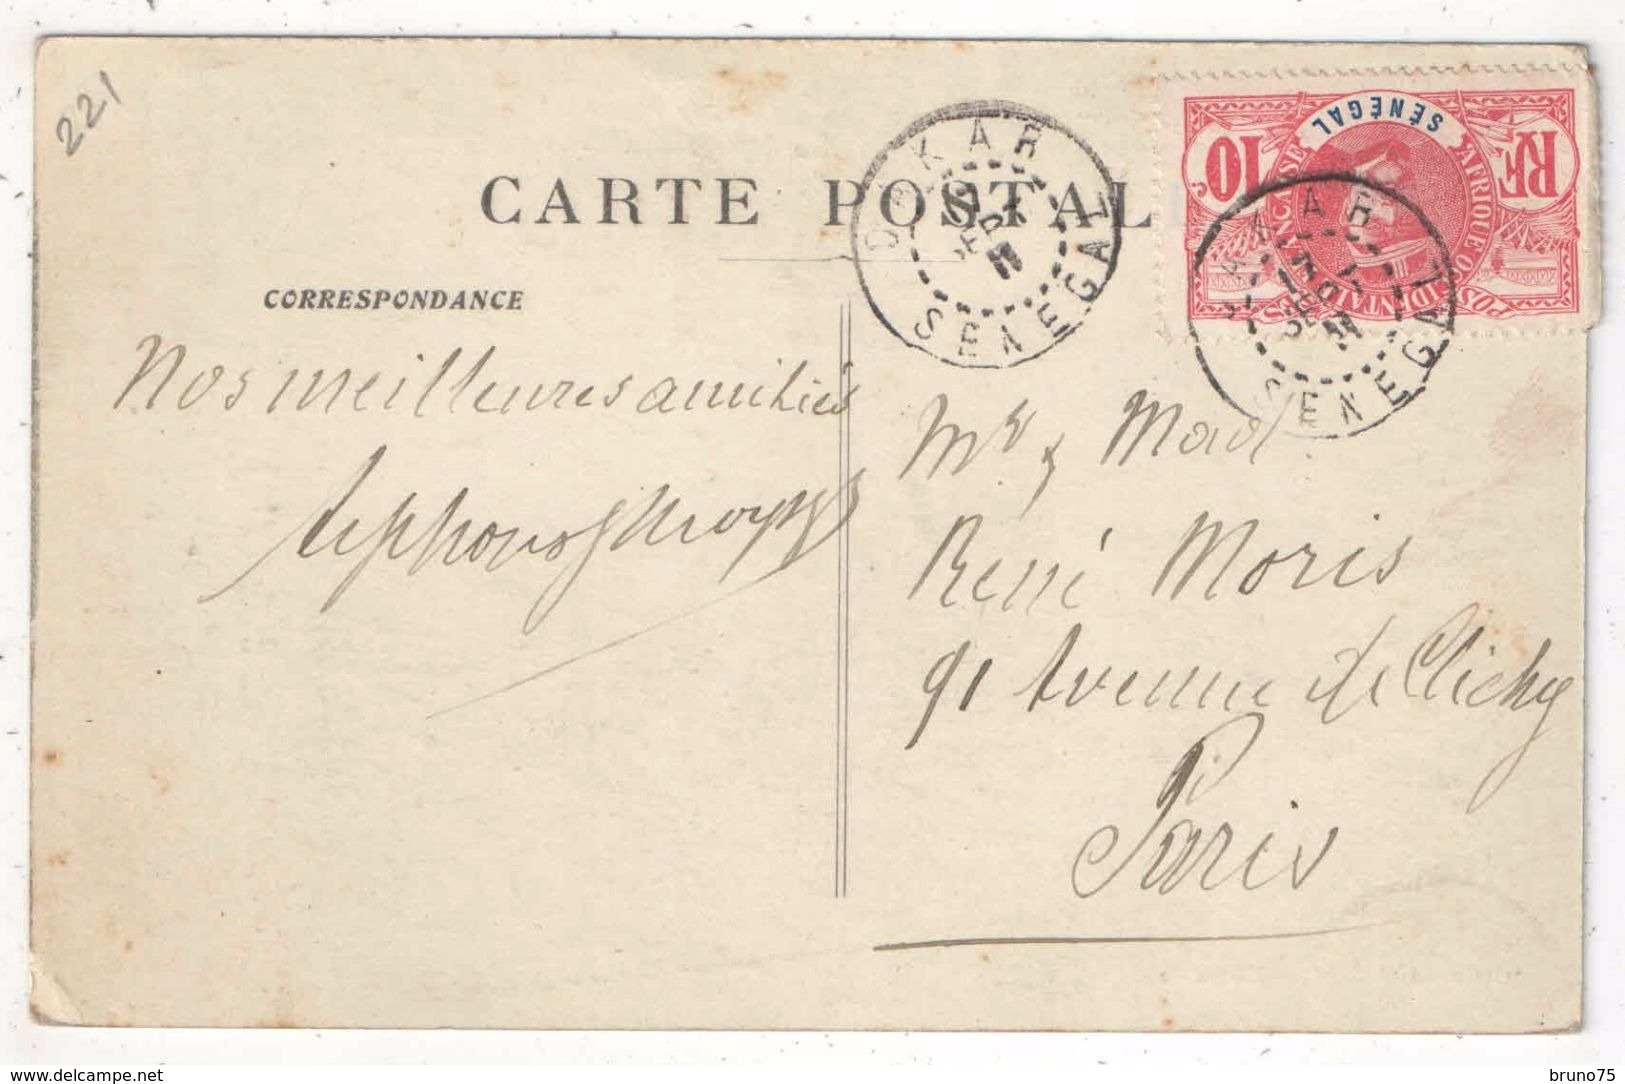 221
CARTE POSTAL
CORRESPONDANCE
Nos meilleures amitiés
DAKAR
SENEGAL
11
SÉNÉGAL
RF
10
AFRIQUE OCCIDENTALE FRANÇAISE
POSTES
DAKAR
SENEGAL
11
Mr & Mad
René Moris
91 Avenue de Clichy
Paris
delcampe.net
bruno75